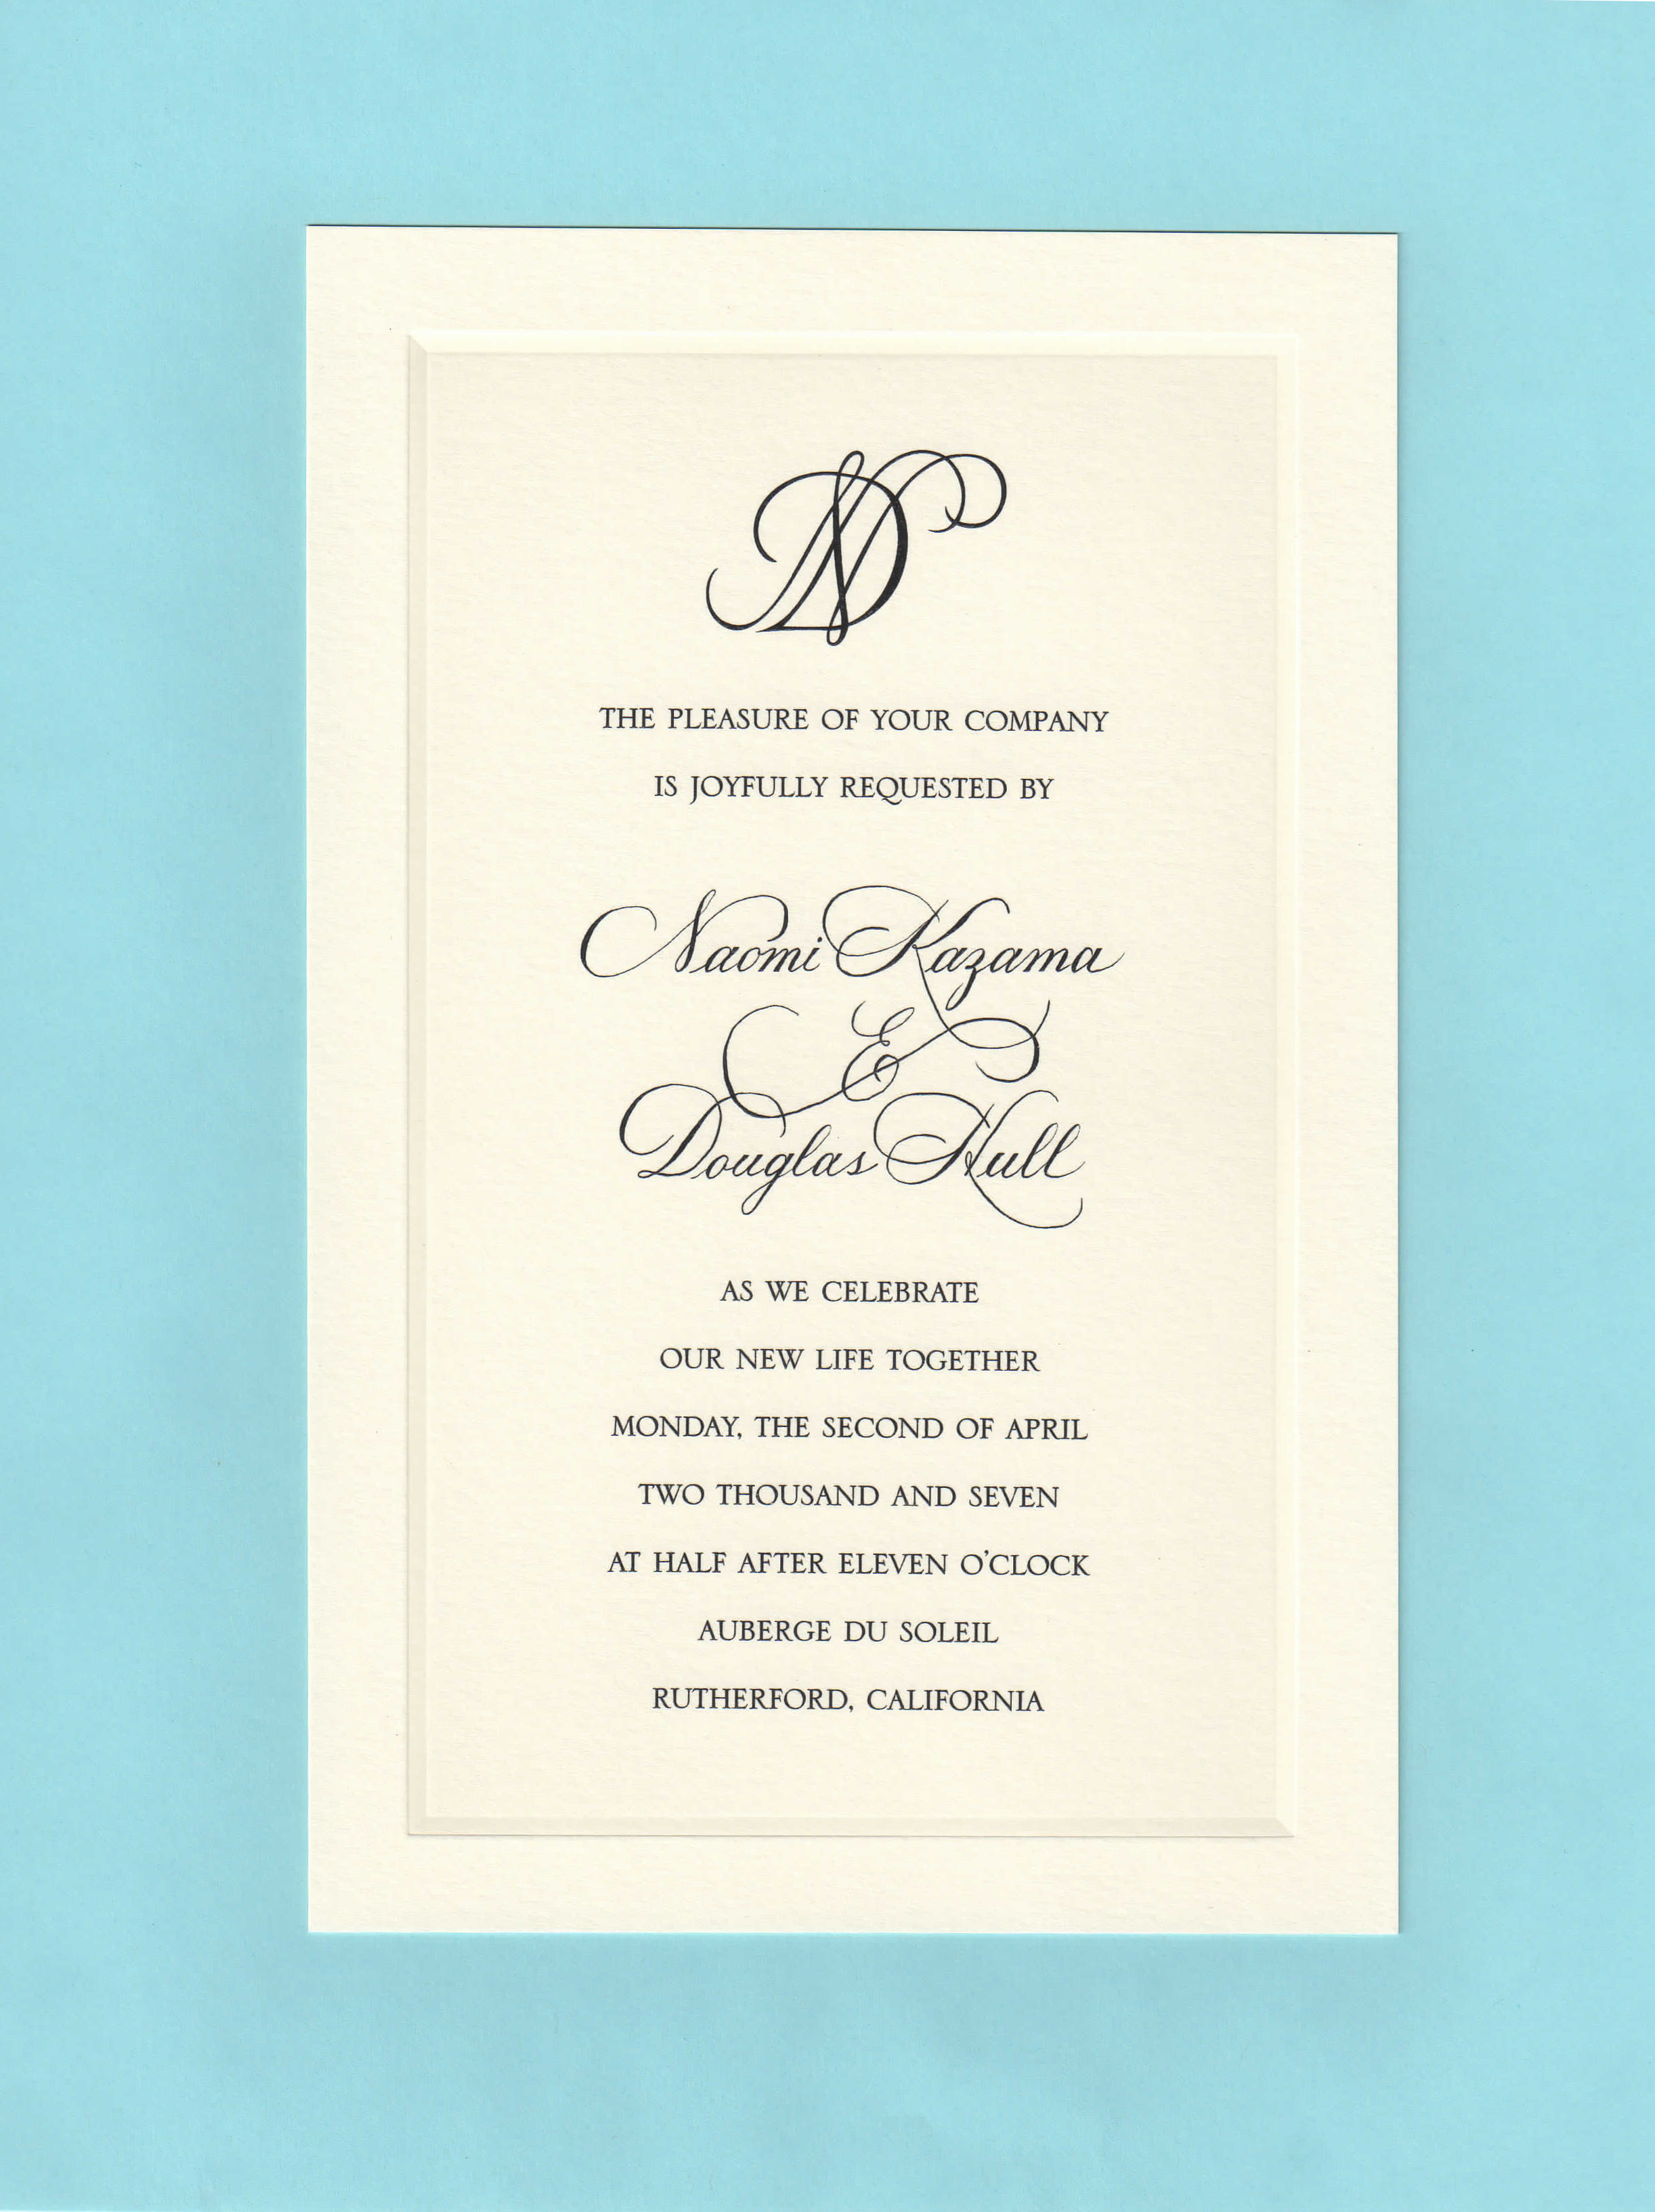 ND
THE PLEASURE OF YOUR COMPANY
IS JOYFULLY REQUESTED BY
Naomi Kazama
&
Douglas Hull
AS WE CELEBRATE
OUR NEW LIFE TOGETHER
MONDAY, THE SECOND OF APRIL
TWO THOUSAND AND SEVEN
AT HALF AFTER ELEVEN O'CLOCK
AUBERGE DU SOLEIL
RUTHERFORD, CALIFORNIA